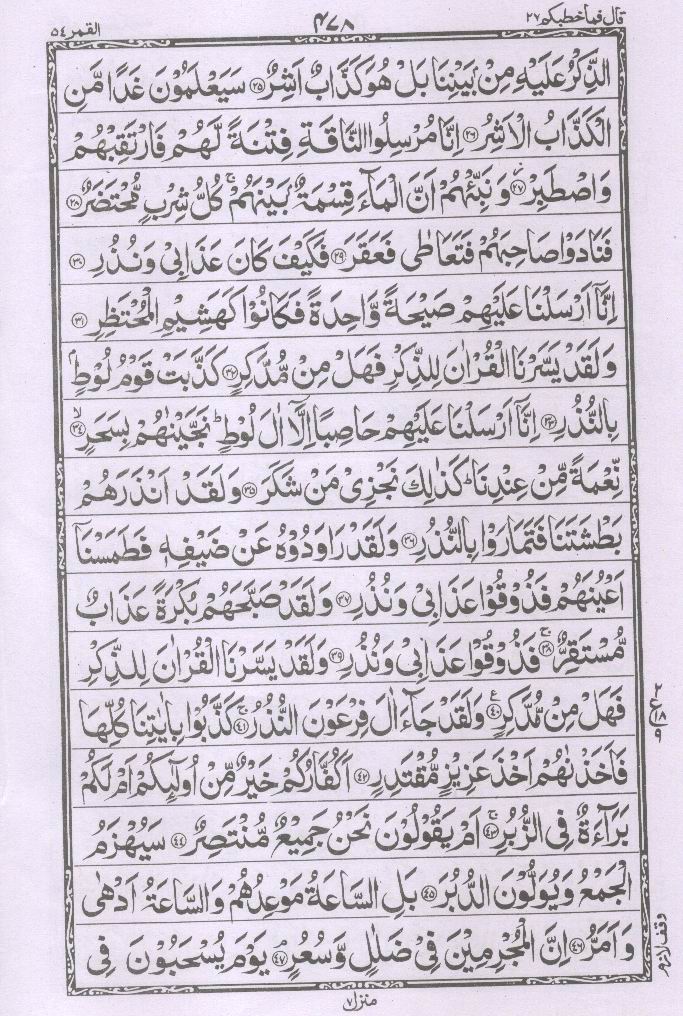 قال فما خطبكم ٢٧
٤٧٨
القمر ٥٤
الذِّكْرُ عَلَيْهِ مِنْۢ بَيْنِنَا بَلْ هُوَ كَذَّابٌ اَشِرٌ ﴿٢٥﴾ سَيَعْلَمُوْنَ غَدًا مَّنِ
الْكَذَّابُ الْاَشِرُ ﴿٢٦﴾ اِنَّا مُرْسِلُوا النَّاقَةِ فِتْنَةً لَّهُمْ فَارْتَقِبْهُمْ
وَاصْطَبِرْ ﴿٢٧﴾ وَنَبِّئْهُمْ اَنَّ الْمَآءَ قِسْمَةٌۢ بَيْنَهُمْ ۚ كُلُّ شِرْبٍ مُّحْتَضَرٌ ﴿٢٨﴾
فَنَادَوْا صَاحِبَهُمْ فَتَعَاطٰى فَعَقَرَ ﴿٢٩﴾ فَكَيْفَ كَانَ عَذَابِىْ وَنُذُرِ ﴿٣٠﴾
اِنَّآ اَرْسَلْنَا عَلَيْهِمْ صَيْحَةً وَّاحِدَةً فَكَانُوْا كَهَشِيْمِ الْمُحْتَظِرِ ﴿٣١﴾
وَلَقَدْ يَسَّرْنَا الْقُرْاٰنَ لِلذِّكْرِ فَهَلْ مِنْ مُّدَّكِرٍ ﴿٣٢﴾ كَذَّبَتْ قَوْمُ لُوْطٍۭ
بِالنُّذُرِ ﴿٣٣﴾ اِنَّآ اَرْسَلْنَا عَلَيْهِمْ حَاصِبًا اِلَّآ اٰلَ لُوْطٍ ؕ نَجَّيْنٰهُمْ بِسَحَرٍ ﴿٣٤﴾ ۙ
نِّعْمَةً مِّنْ عِنْدِنَا ؕ كَذٰلِكَ نَجْزِىْ مَنْ شَكَرَ ﴿٣٥﴾ وَلَقَدْ اَنْذَرَهُمْ
بَطْشَتَنَا فَتَمَارَوْا بِالنُّذُرِ ﴿٣٦﴾ وَلَقَدْ رَاوَدُوْهُ عَنْ ضَيْفِهٖ فَطَمَسْنَآ
اَعْيُنَهُمْ فَذُوْقُوْا عَذَابِىْ وَنُذُرِ ﴿٣٧﴾ وَلَقَدْ صَبَّحَهُمْ بُكْرَةً عَذَابٌ
مُّسْتَقِرٌّ ﴿٣٨﴾ ۚ فَذُوْقُوْا عَذَابِىْ وَنُذُرِ ﴿٣٩﴾ وَلَقَدْ يَسَّرْنَا الْقُرْاٰنَ لِلذِّكْرِ
فَهَلْ مِنْ مُّدَّكِرٍ ﴿٤٠﴾ ع وَلَقَدْ جَآءَ اٰلَ فِرْعَوْنَ النُّذُرُ ﴿٤١﴾ ۚ كَذَّبُوْا بِاٰيٰتِنَا كُلِّهَا
فَاَخَذْنٰهُمْ اَخْذَ عَزِيْزٍ مُّقْتَدِرٍ ﴿٤٢﴾ اَكُفَّارُكُمْ خَيْرٌ مِّنْ اُولٰٓئِكُمْ اَمْ لَكُمْ
بَرَآءَةٌ فِى الزُّبُرِ ﴿٤٣﴾ ۚ اَمْ يَقُوْلُوْنَ نَحْنُ جَمِيْعٌ مُّنْتَصِرٌ ﴿٤٤﴾ سَيُهْزَمُ
الْجَمْعُ وَيُوَلُّوْنَ الدُّبُرَ ﴿٤٥﴾ بَلِ السَّاعَةُ مَوْعِدُهُمْ وَالسَّاعَةُ اَدْهٰى
وَاَمَرُّ ﴿٤٦﴾ اِنَّ الْمُجْرِمِيْنَ فِىْ ضَلٰلٍ وَّسُعُرٍ ﴿٤٧﴾ ۘ يَوْمَ يُسْحَبُوْنَ فِى
٢
ع
١٨
٩
وقف لازم
منزل ٧